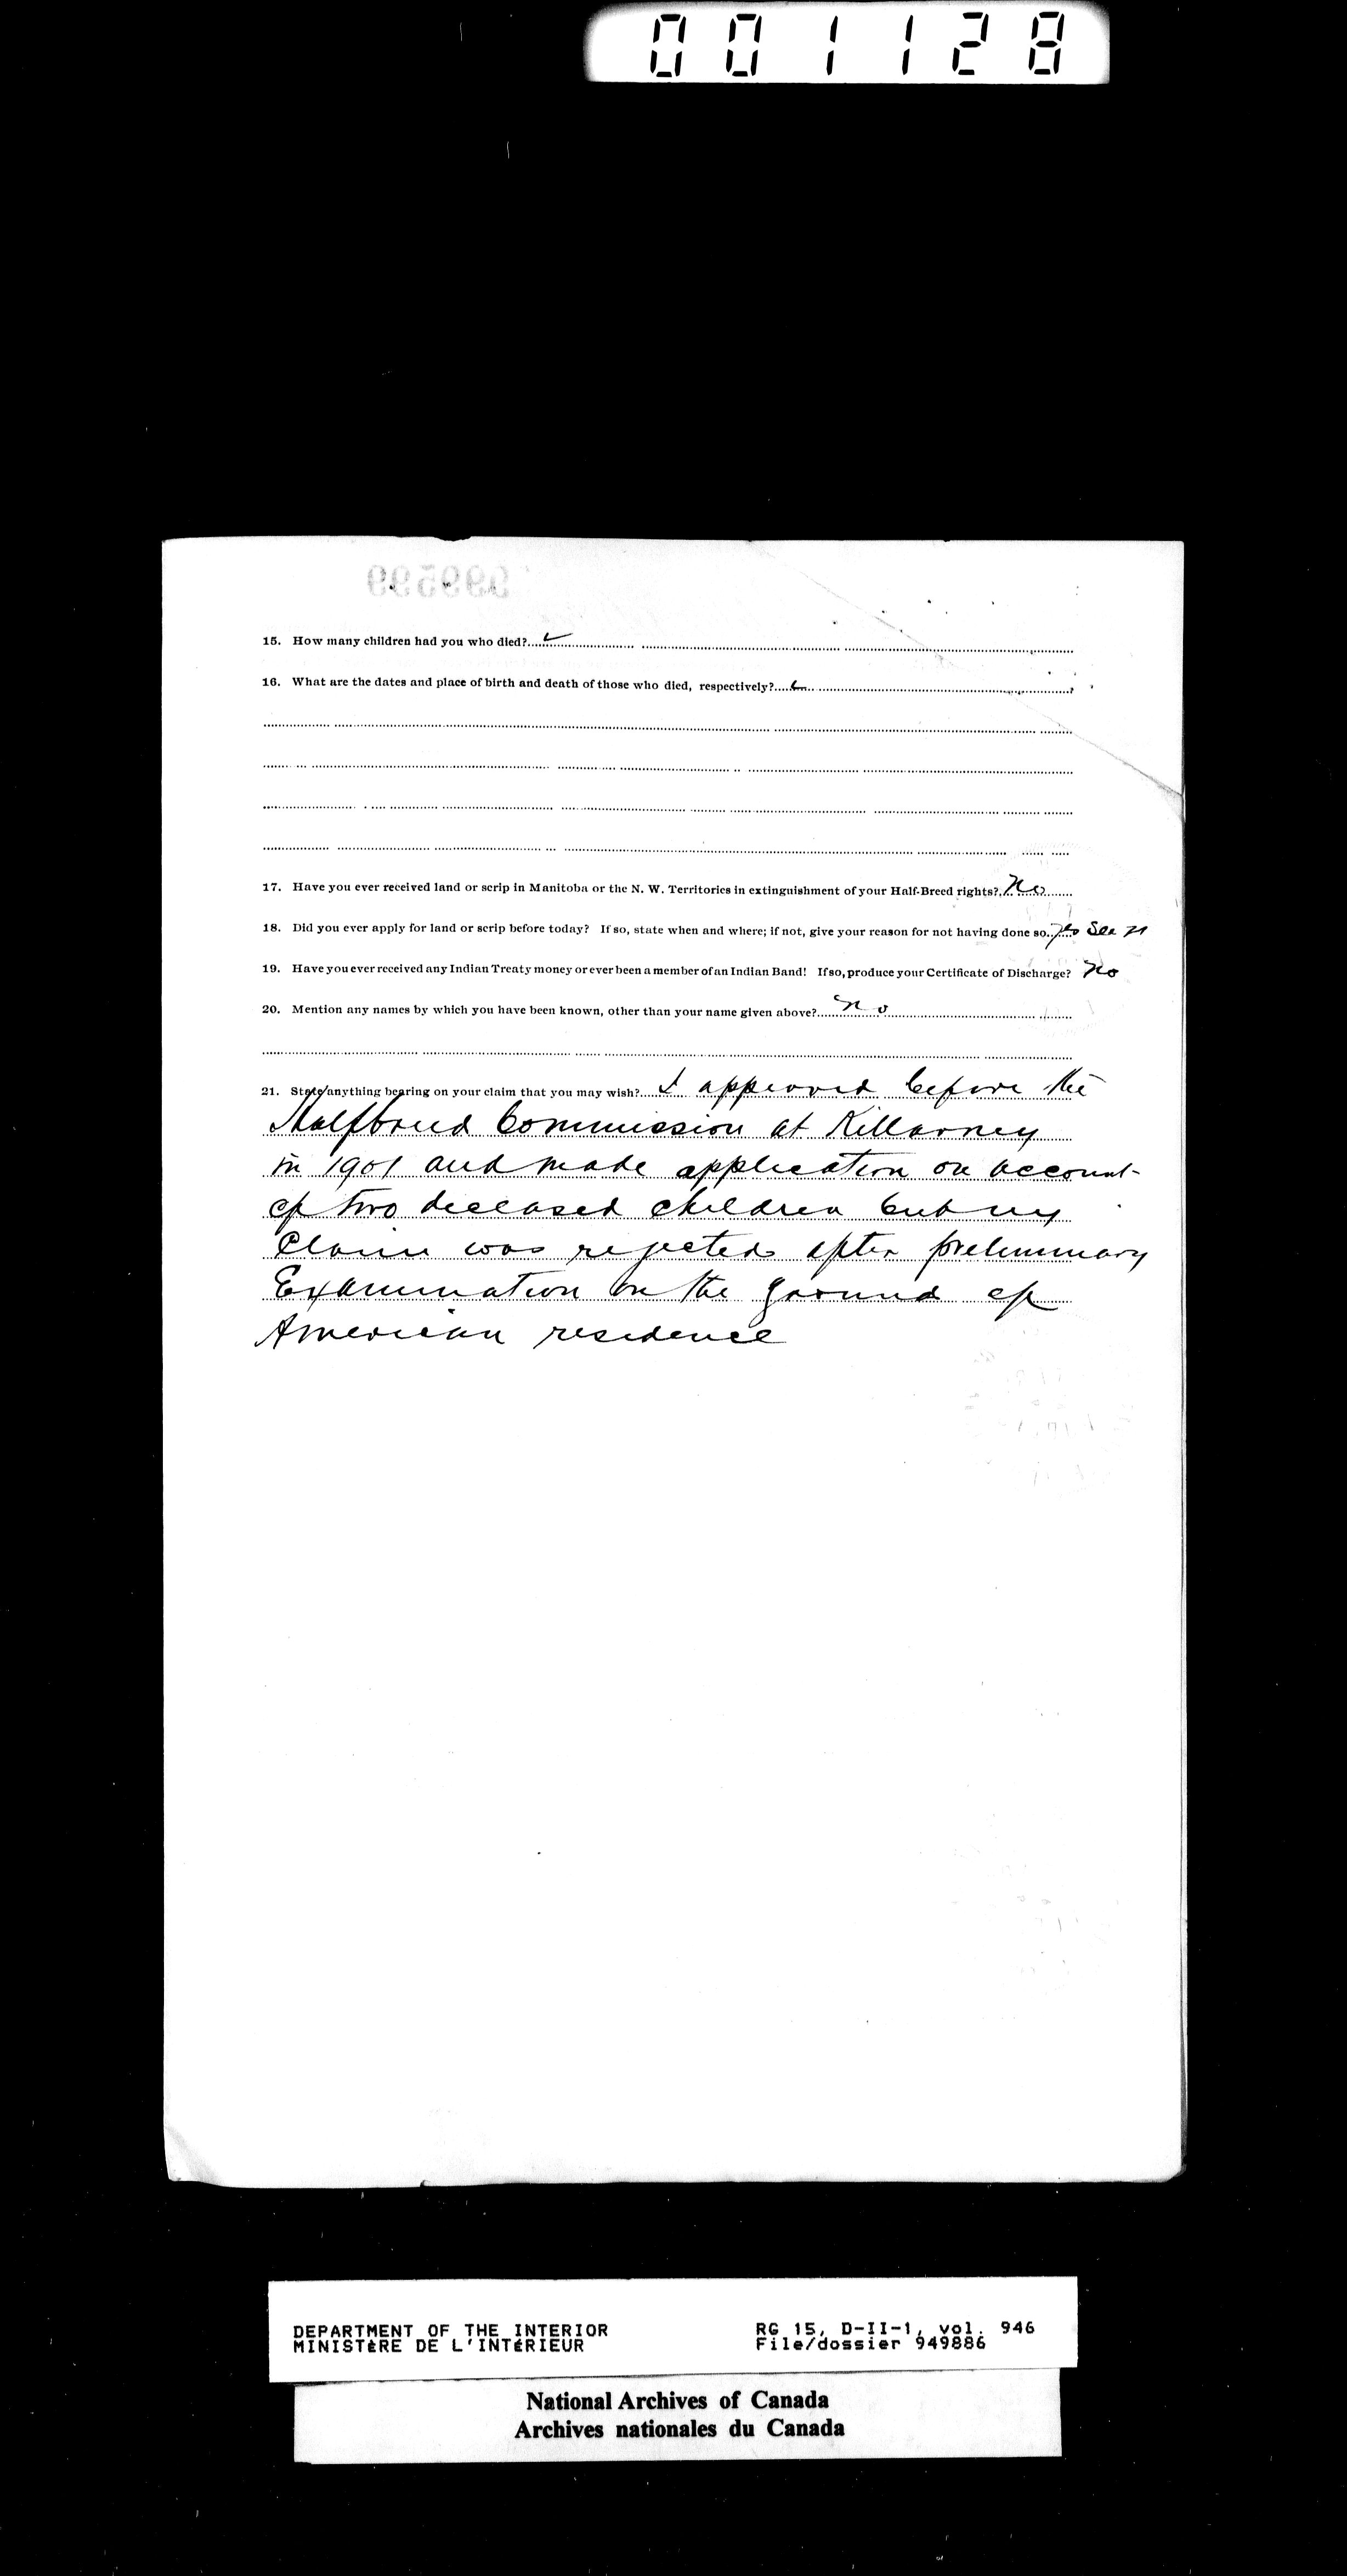 001128
15. How many children had you who died?
16. What are the dates and place of birth and death of those who died, respectively?
17. Have you ever received land or scrip in Manitoba or the N. W. Territories in extinguishment of your Half-Breed rights? No
18. Did you ever apply for land or scrip before today? If so, state when and where; if not, give your reason for not having done so. See 21
19. Have you ever received any Indian Treaty money or ever been a member of an Indian Band! If so, produce your Certificate of Discharge? No
20. Mention any names by which you have been known, other than your name given above? No
21. State anything bearing on your claim that you may wish? I appeared before the
Halfbreed Commission at Killarney
in 1901 and made application on account
of two deceased children but my
Claim was rejected after preliminary
Examination on the ground of
American residence
DEPARTMENT OF THE INTERIOR
MINISTÈRE DE L'INTÉRIEUR
RG 15, D-II-1, vol. 946
File/dossier 949886
National Archives of Canada
Archives nationales du Canada